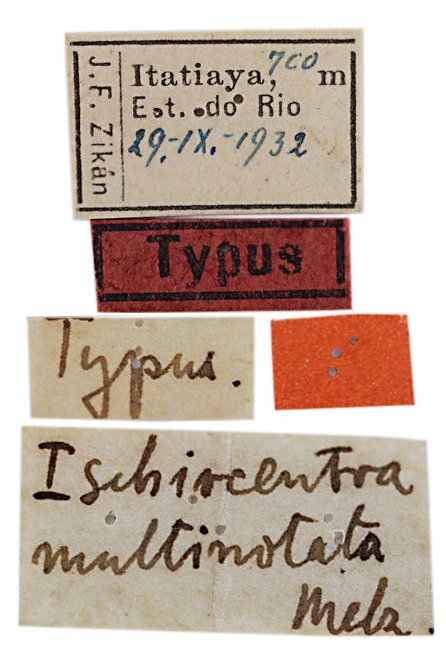 J. F. Zikán
Itatiaya, 700 m
Est. do Rio
29.-IX.-1932
Typus
Typus.
Ischiocentra
multinotata
Melz.